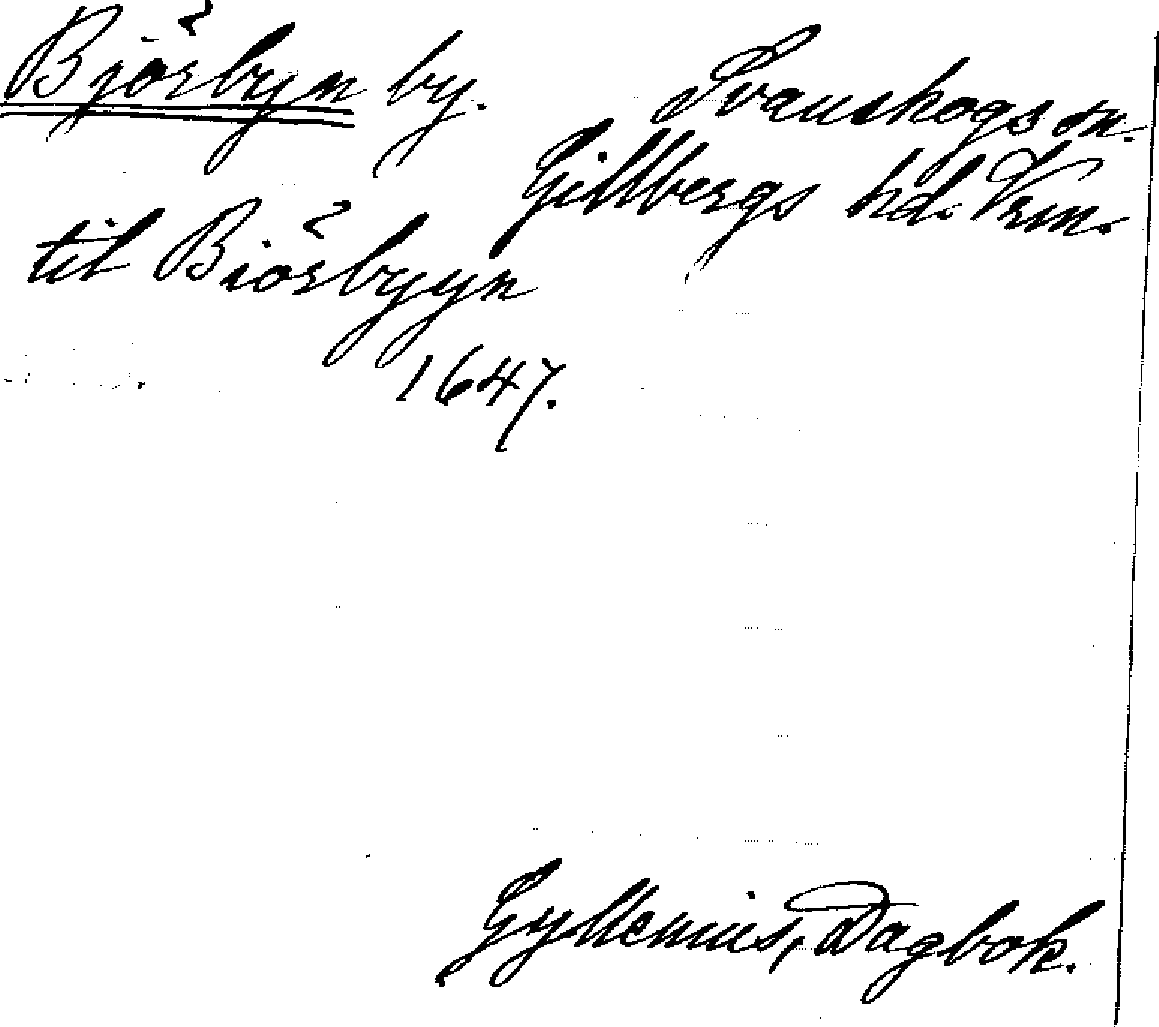 Björbyn by. Svanskogs sn.
Gillbergs hd. Vrm.
till Biörbyyn
1647.
Gyllenius, Dagbok.